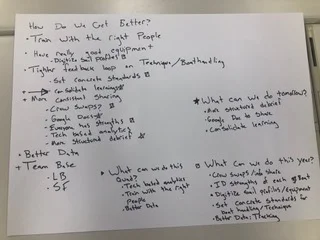 How Do We Get Better?
• Train with the right People
• Have really good equipment
• Digitize Sail Profiles
• Tighter feedback loop on Technique/Boathandling
• Set concrete standards
• consolidate learnings
• More consistent sharing
• Crew swaps?
• Google Docs
• Everyone has strengths
• Tech based analytics
• More structured debrief
• Better Data
+ Team Base
• LB
• SF
What can we do this Quad?
• Tech based analytics
• Train with the right people
• Better Data
★ What can we do tomorrow?
• More structured debrief
• Google Doc to share
• Consolidate learning
What can we do this year?
• Crew swaps/info share
• ID strengths of each Boat
• Digitize sail profiles/equipment
• Set concrete standards for
boat handling/Technique
• Better Data: Tracking